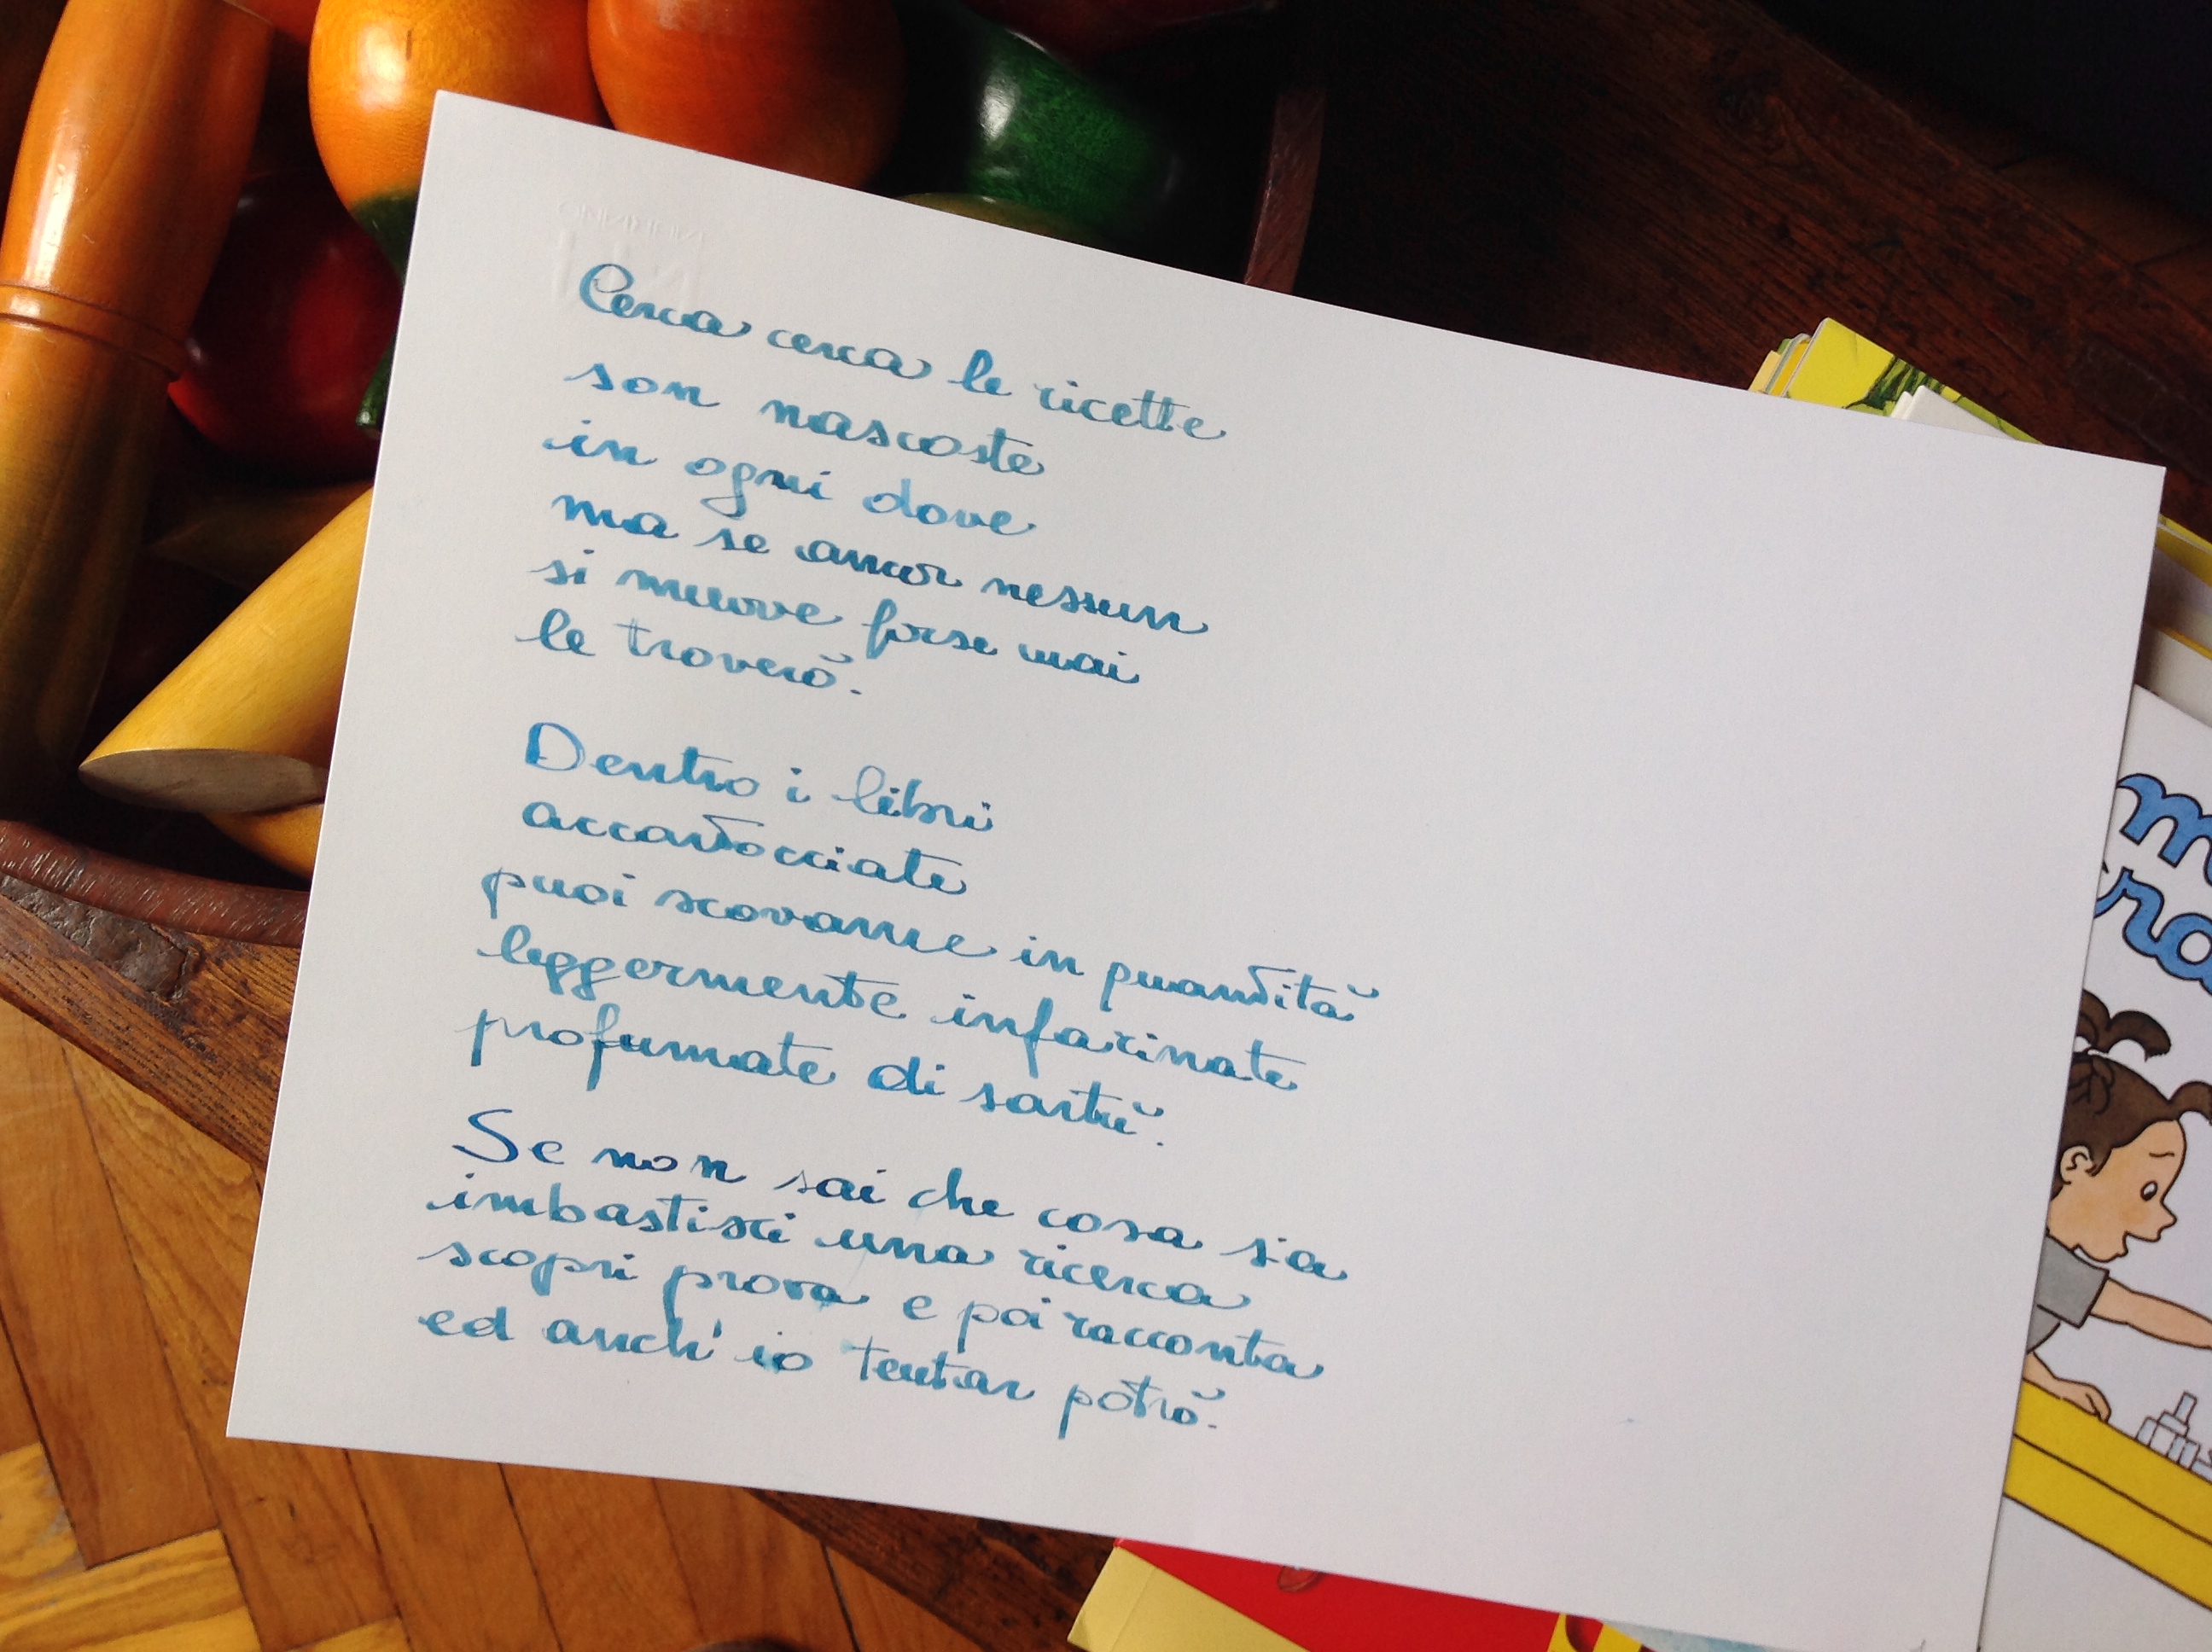 Cerca cerca le ricette
son nascoste
in ogni dove
ma se ancor nessun
si muove forse mai
le troverò.
Dentro i libri
accartocciate
puoi scovarne in quantità
leggermente infarinate
profumate di sartù.
Se non sai che cosa sia
imbastisci una ricerca
scopri prova e poi racconta
ed anch' io tentar potrò.